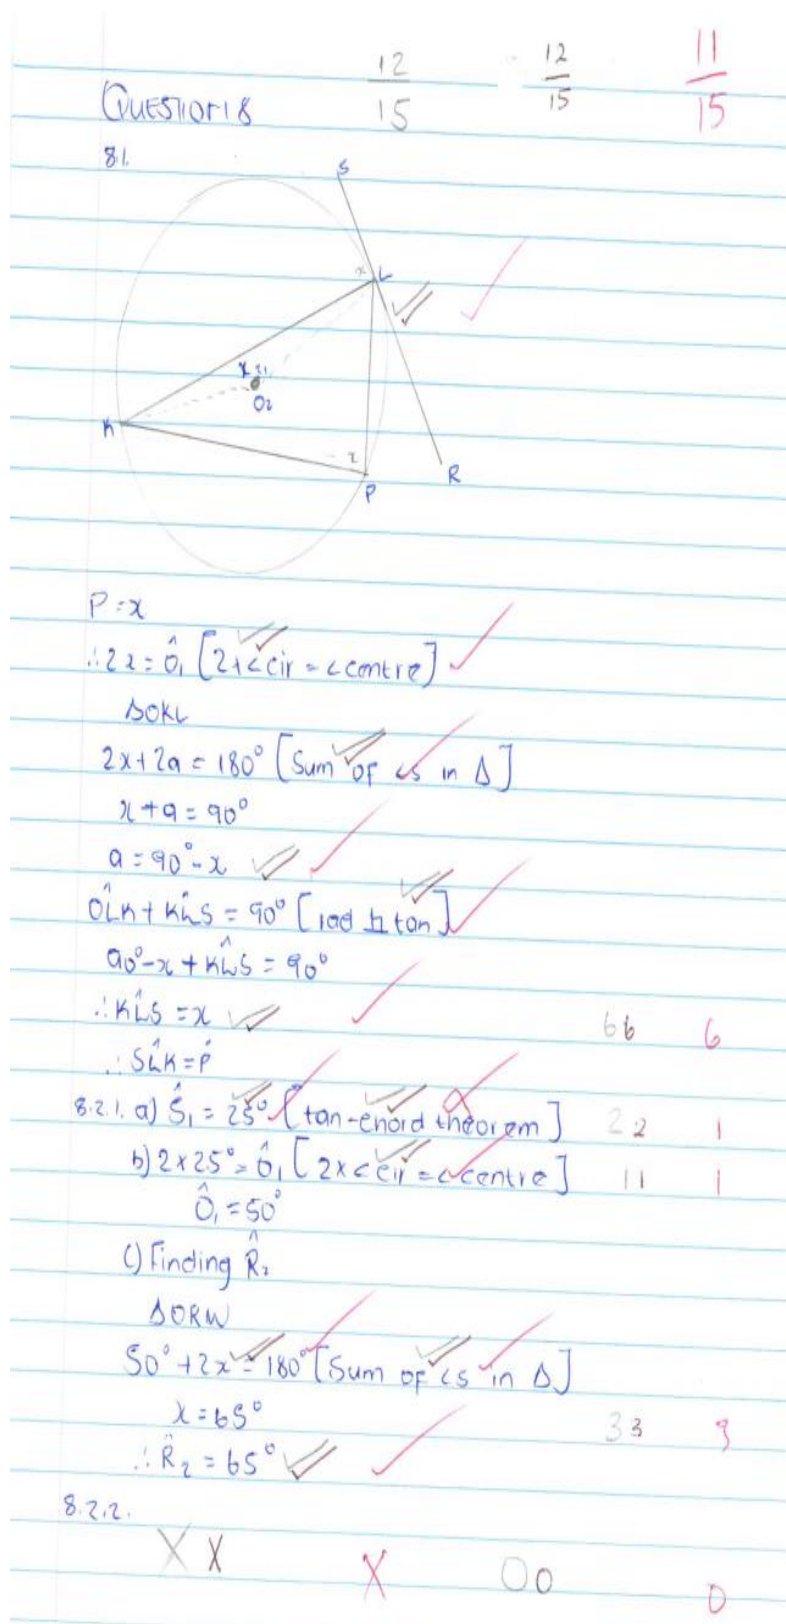 12/15 12/15 11/15
QUESTION 8
8.1.
S
x L
x 1
O2
K
x
P R
P = x
∴ 2x = Ô₁ [2×∠cir = ∠centre]
ΔOKL
2x + 2a = 180° [Sum of ∠s in Δ]
x + a = 90°
a = 90° - x
OL̂K + KL̂S = 90° [rad ⊥ tan]
90° - x + KL̂S = 90°
∴ KL̂S = x 6 6 6
∴ SL̂K = P̂
8.2.1. a) Ŝ₁ = 25° [tan-chord theorem] 2 2 1
b) 2×25° = Ô₁ [2×∠cir = ∠centre] 1 1 1
Ô₁ = 50°
c) Finding R̂₂
ΔORW
50° + 2x = 180° [Sum of ∠s in Δ]
x = 65° 3 3 3
∴ R̂₂ = 65°
8.2.2.
X X X 0 0 0